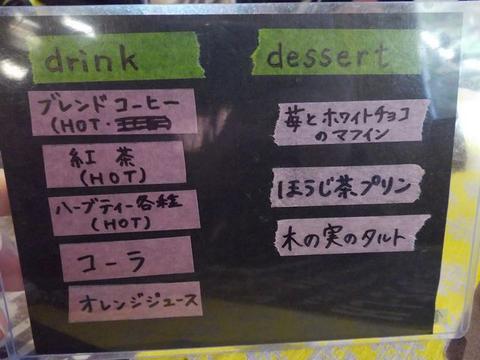 drink
ブレンドコーヒー
(HOT・
紅茶
(HOT)
ハーブティー各種
(HOT)
コーラ
オレンジジュース
dessert
苺とホワイトチョコ
のマフィン
ほうじ茶プリン
木の実のタルト